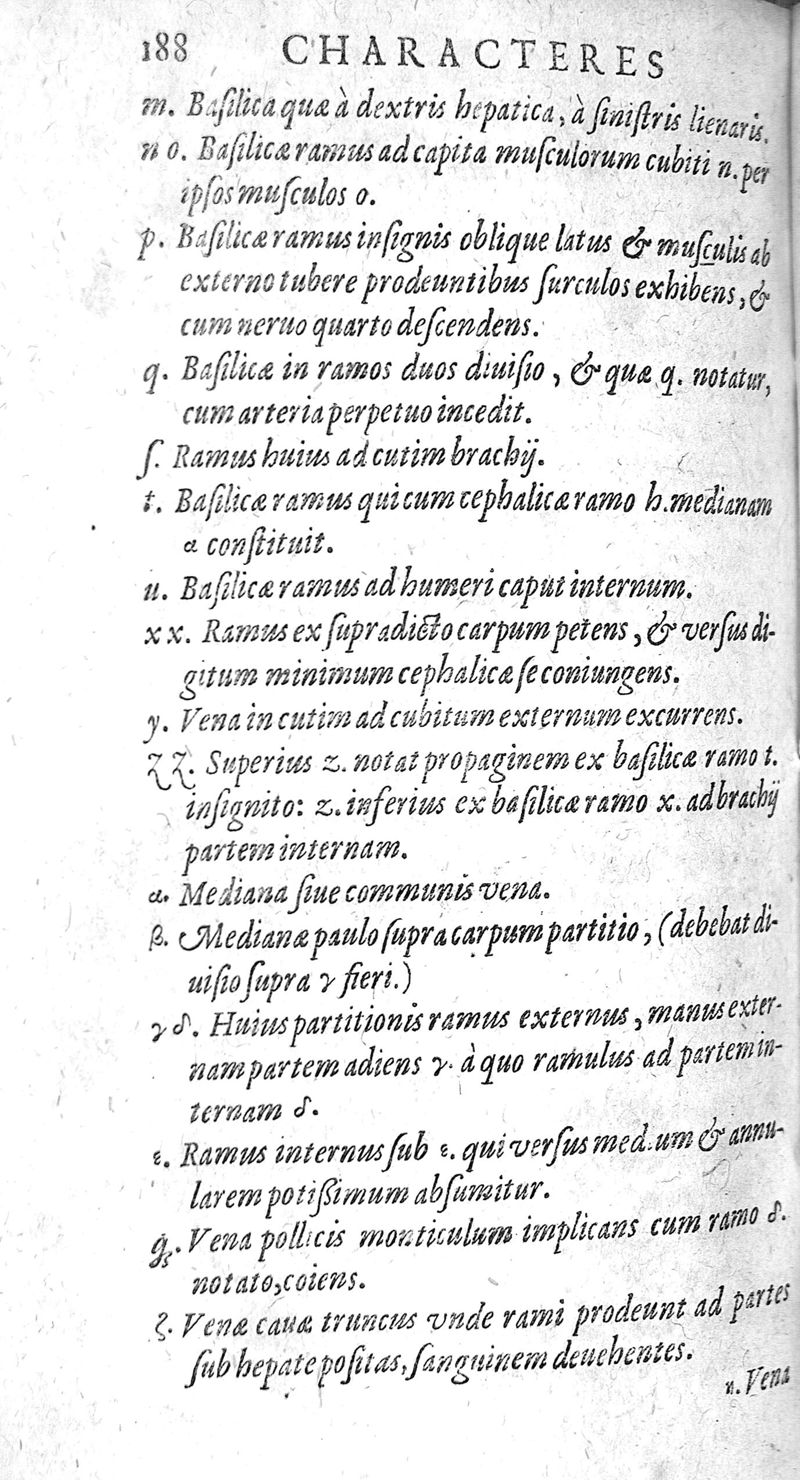 188 CHARACTERES
m. Baſilica quæ à dextris hepatica, à ſiniſtris lienaris.
n o. Baſilicæ ramus ad capita muſculorum cubiti n. per
ipſos muſculos o.
p. Baſilicæ ramus inſignis oblique latus & muſculis ab
externo tubere prodeuntibus ſurculos exhibens, &
cum neruo quarto deſcendens.
q. Baſilicæ in ramos duos diuiſio, & quæ q. notatur,
cum arteria perpetuo incedit.
ſ. Ramus huius ad cutim brachij.
t. Baſilicæ ramus qui cum cephalicæ ramo h. medianam
α conſtituit.
u. Baſilicæ ramus ad humeri caput internum.
x x. Ramus ex ſupradicto carpum petens, & verſus di-
gitum minimum cephalicæ ſe coniungens.
y. Vena in cutim ad cubitum externum excurrens.
z z. Superius z. notat propaginem ex baſilicæ ramo t.
inſignito: z. inferius ex baſilicæ ramo x. ad brachij
partem internam.
α. Mediana ſiue communis vena.
β. Medianæ paulo ſupra carpum partitio, (debebat di-
uiſio ſupra γ fieri.)
γ δ. Huius partitionis ramus externus, manus exter-
nam partem adiens γ. à quo ramulus ad partem in-
ternam δ.
ε. Ramus internus ſub ε. qui verſus medium & annu-
larem potiſſimum abſumitur.
Vena pollicis monticulum implicans cum ramo δ.
notato, coiens.
ζ. Venæ cauæ truncus vnde rami prodeunt ad partes
ſub hepate poſitas, ſanguinem deuehentes.
η. Vena